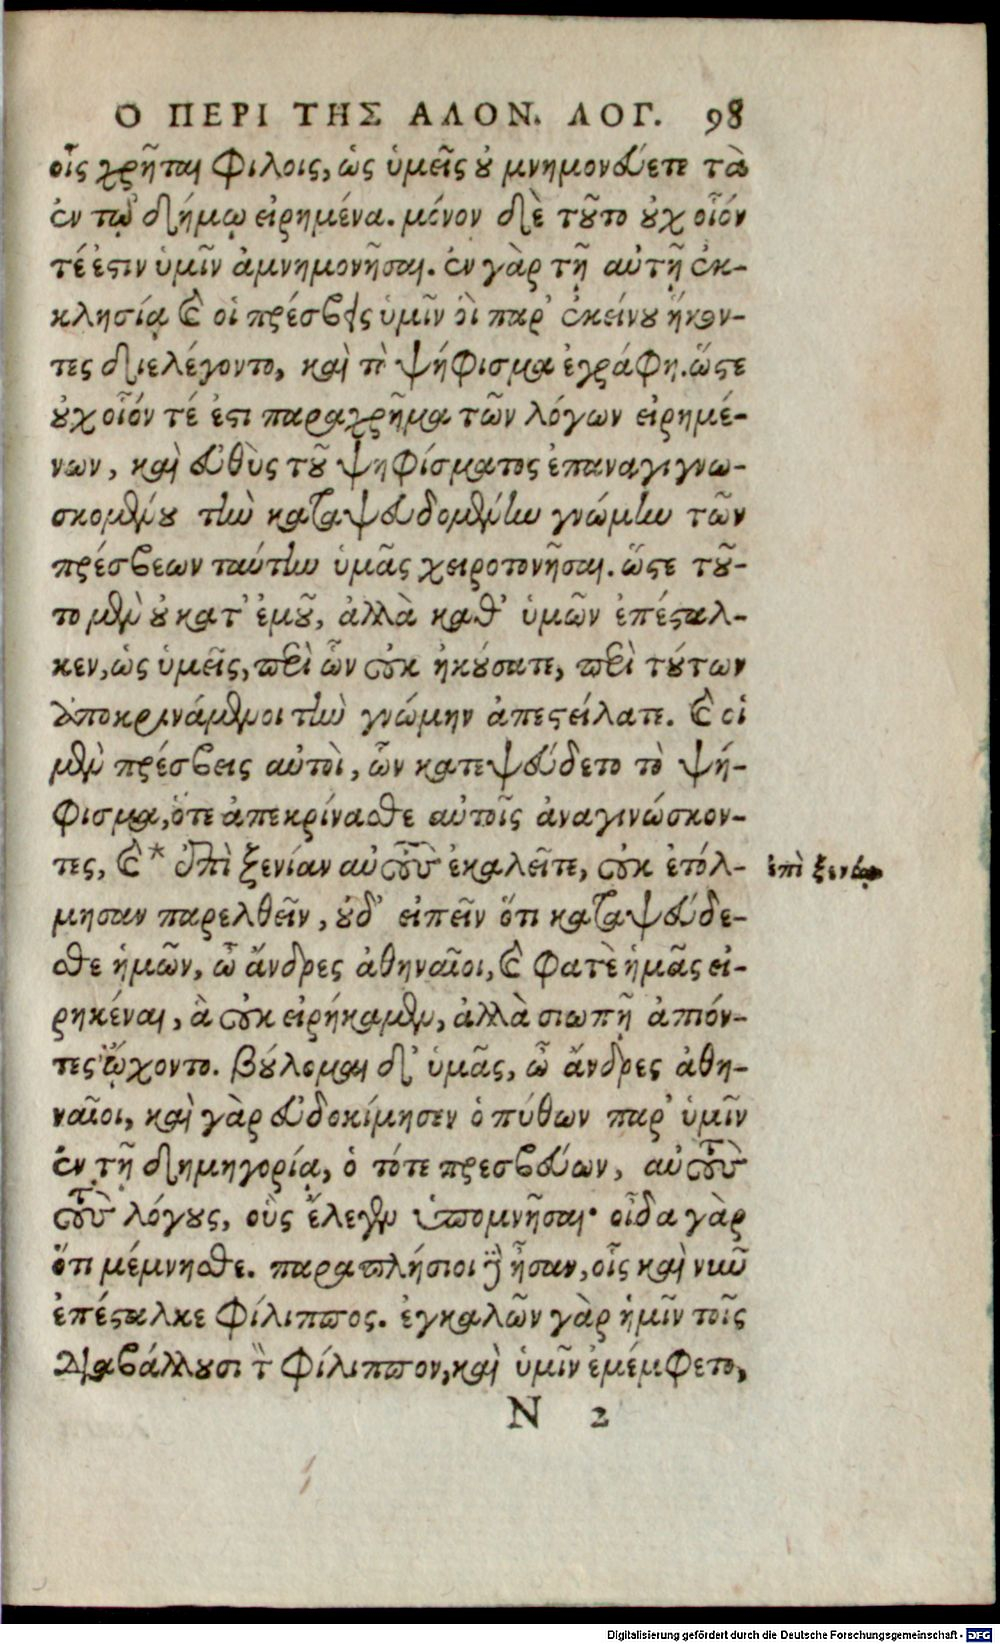 Ο ΠΕΡΙ ΤΗΣ ΑΛΟΝ. ΛΟΓ. 98
οἷς χρῆται φίλοις, ὡς ὑμεῖς οὐ μνημονεύετε τὰ
ἐν τῷ δήμῳ εἰρημένα. μόνον δὲ τοῦτο οὐχ οἷόν
τέ ἐστιν ὑμῖν ἀμνημονῆσαι. ἐν γὰρ τῇ αὐτῇ ἐκ-
κλησίᾳ καὶ οἱ πρέσβεις ὑμῖν οἱ παρ' ἐκείνου ἥκον-
τες διελέγοντο, καὶ τὸ ψήφισμα ἐγράφη. ὥστε
οὐχ οἷόν τέ ἐστι παραχρῆμα τῶν λόγων εἰρημέ-
νων, καὶ εὐθὺς τοῦ ψηφίσματος ἐπαναγιγνω-
σκομένου τὴν καταψευδομένην γνώμην τῶν
πρέσβεων ταύτην ὑμᾶς χειροτονῆσαι. ὥστε τοῦ-
το μὲν οὐ κατ' ἐμοῦ, ἀλλὰ καθ' ὑμῶν ἐπέσταλ-
κεν, ὡς ὑμεῖς, περὶ ὧν οὐκ ἠκούσατε, περὶ τούτων
ἀποκρινάμενοι τὴν γνώμην ἀπεστείλατε. καὶ οἱ
μὲν πρέσβεις αὐτοὶ, ὧν κατεψεύδετο τὸ ψή-
φισμα, ὅτε ἀπεκρίνασθε αὐτοῖς ἀναγινώσκον-
τες, καὶ * ἐπὶ ξενίαν αὐτοὺς ἐκαλεῖτε, οὐκ ἐτόλ-
ἐπὶ ξενίᾳ
μησαν παρελθεῖν, οὐδ' εἰπεῖν ὅτι καταψεύδε-
σθε ἡμῶν, ὦ ἄνδρες ἀθηναῖοι, καὶ φατὲ ἡμᾶς εἰ-
ρηκέναι, ἃ οὐκ εἰρήκαμεν, ἀλλὰ σιωπῇ ἀπιόν-
τες ᾤχοντο. βούλομαι δ' ὑμᾶς, ὦ ἄνδρες ἀθη-
ναῖοι, καὶ γὰρ εὐδοκίμησεν ὁ πύθων παρ' ὑμῖν
ἐν τῇ δημηγορίᾳ, ὁ τότε πρεσβεύων, αὐτοὺς
τοὺς λόγους, οὓς ἔλεγεν ὑπομνῆσαι· οἶδα γὰρ
ὅτι μέμνησθε. παραπλήσιοι δὲ ἦσαν, οἷς καὶ νῦν
ἐπέσταλκε φίλιππος. ἐγκαλῶν γὰρ ἡμῖν τοῖς
διαβάλλουσι τὸν φίλιππον, καὶ ὑμῖν ἐμέμφετο,
N 2
Digitalisierung gefördert durch die Deutsche Forschungsgemeinschaft - DFG